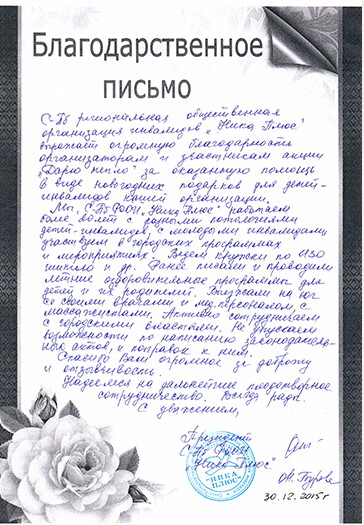 Благодарственное
письмо
С-Пб региональная общественная
организация инвалидов „Ника Плюс"
выражает огромную благодарность
организаторам и участникам акции
„Дарю тепло" за оказанную помощь
в виде новогодних подарков для детей-
инвалидов нашей организации.
Мы, С-Пб РООИ „Ника Плюс" работаем
более 20 лет с
детей-инвалидов, с молодыми инвалидами
участвуем в городских программах
и мероприятиях. Ведем кружки по ИЗО
и др. Ранее писали и проводили
летние оздоровительные программы для
детей и их родителей. Выезжали на юг
со своими врачами и мед. персоналом, с
массажистами. Активно сотрудничаем
с городскими властями. Не упускаем
возможности по написанию законодатель-
ных актов, и поправок к ним.
Спасибо Вам огромное за доброту
и отзывчивость.
Надеемся на дальнейшее плодотворное
сотрудничество. Всегда рады.
С уважением,
Президент
С-Пб РООИ
„Ника Плюс"
"НИКА
ПЛЮС"
30.12.2015г